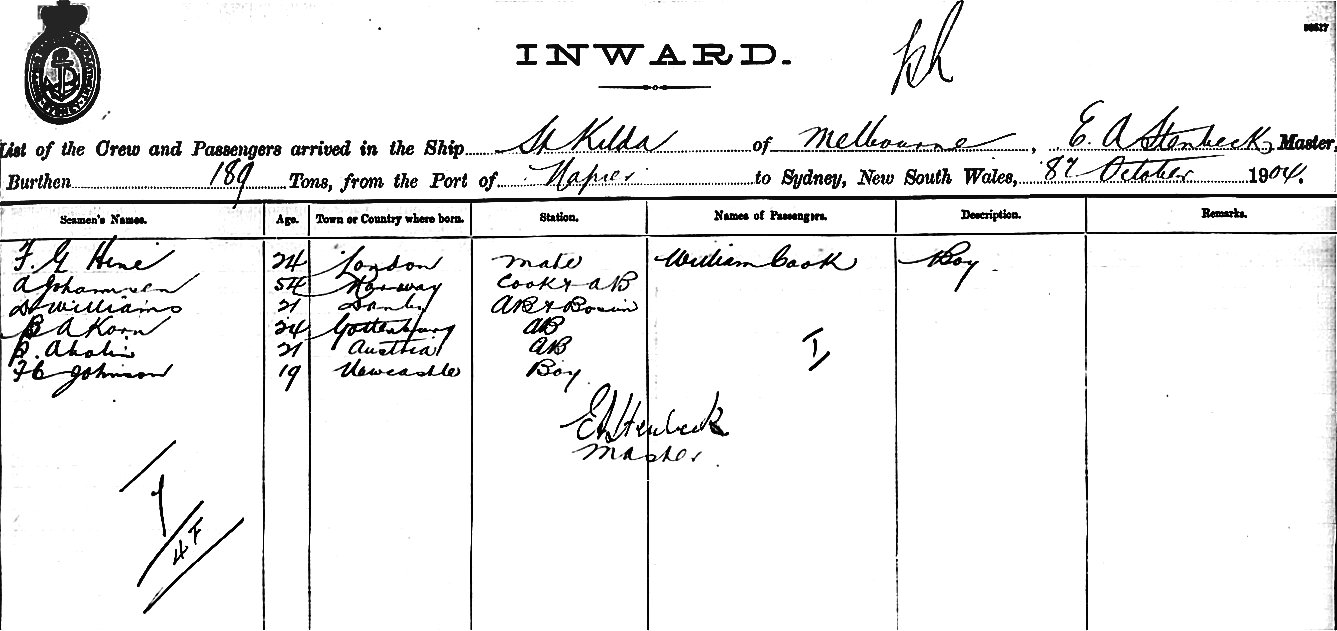 INWARD.
List of the Crew and Passengers arrived in the Ship St Kilda of Melbourne, E. A Stenbeck, Master,
Burthen 189 Tons, from the Port of Napier to Sydney, New South Wales, 8th October 1904.
Seamen's Names. Age. Town or Country where born. Station. Names of Passengers. Description. Remarks.
F. G Hine 24 London Mate William Cook Boy
A Johannsen 54 Norway Cook & AB
D Williams 21 AB & Bosun
B A Korn 24 Gottenburg AB
21 Austria AB I
F C Johnson 19 Newcastle Boy
E A Stenbeck
Master
7
4 F